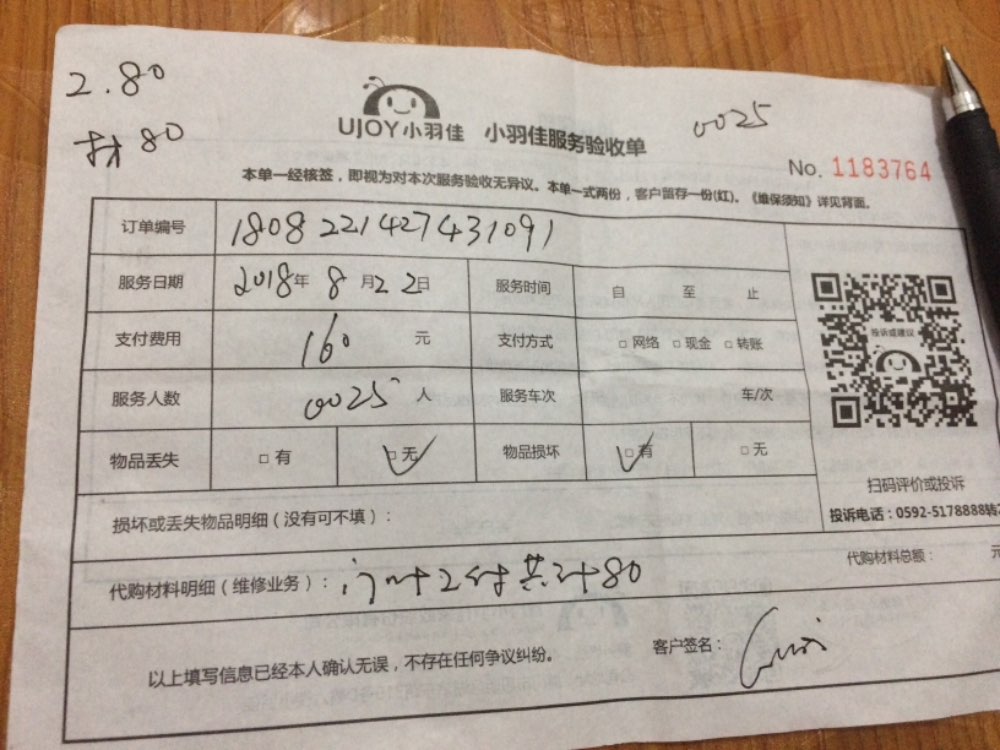 2.80
材 80
UJOY小羽佳 小羽佳服务验收单
0025
No. 1183764
本单一经核签，即视为对本次服务验收无异议。本单一式两份，客户留存一份(红)。《维保须知》详见背面。
订单编号 1808221427431091
服务日期 2018年 8月22日 服务时间 自 至 止
支付费用 160 元 支付方式 □ 网络 □ 现金 □ 转账
投诉或建议
服务人数 0025 人 服务车次 车/次
物品丢失 □ 有 □ 无 物品损坏 □ 有 □ 无
扫码评价或投诉
投诉电话：0592-5178888转
损坏或丢失物品明细（没有可不填）：
代购材料总额： 元
代购材料明细（维修业务）： 门叶2付共计80
客户签名：
以上填写信息已经本人确认无误，不存在任何争议纠纷。